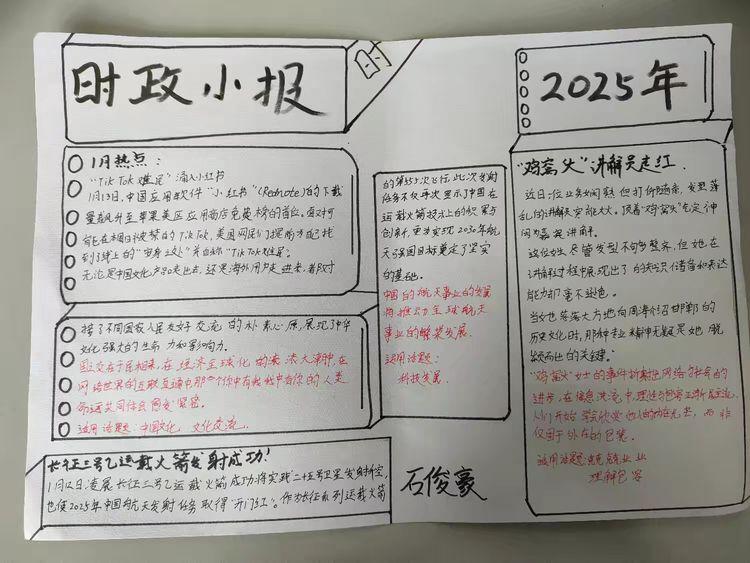 时政小报
时
2025年
1月热点：
"TikTok难民"涌入小红书
1月13日，中国应用软件"小红书"(Rednote)的下载
量飙升至苹果美区应用商店免费榜的首位。面对可
能在本国被禁的TikTok，美国网民们提前为自己找
到了线上的"容身之处"并自称"TikTok难民"。
无论是中国文化产品走出去，还是海外用户走进来，都反对
接了不同国家人民友好交流的朴素心愿，展现了中华
文化强大的生命力和影响力。
国之交在于民相亲，在经济全球化的浪洪大潮中，在
网络世界的互联互通中，那个你中有我我中有你的人类
命运共同体会更加紧密。
适用话题：中国文化，文化交流。
长征三号乙运载火箭发射成功！
1月 日凌晨长征三号乙运载火箭成功将实践二十五号卫星发射升空，
也使2025年中国航天发射任务取得"开门红"。作为长征系列运载火箭
的第555次飞行，此次发射
任务不仅再次显示了中国在
运载火箭技术上的积累与
创新，更为实现2030年航
天强国目标奠定了坚实
的基础。
中国的航天事业的发展
将推动全球航天
事业的繁荣发展。
适用话题：
科技发展
石俊豪
"鸡窝头"讲解员走红
近日一位业务娴熟但打伊 ，发型蓬
乱的讲解员突然大火。顶着"鸡窝头"气定神
闲为嘉宾讲解。
这位女士尽管发型不够整齐，但她在
讲解过程中展现出了的知识储备和表达
能力却毫不逊色。
当女士落落大方地向周涛介绍邯郸的
历史文化时，那种专业精神无疑是她脱
颖而出的关键。
"鸡窝头"女士的事件折射出网络与社会的
进步，在信息洪流中，理性与包容正渐成主流，
人们开始学会欣赏他人的内在光芒，而非
仅囿于外在的包装。
适用话题：兢兢业业
理解包容